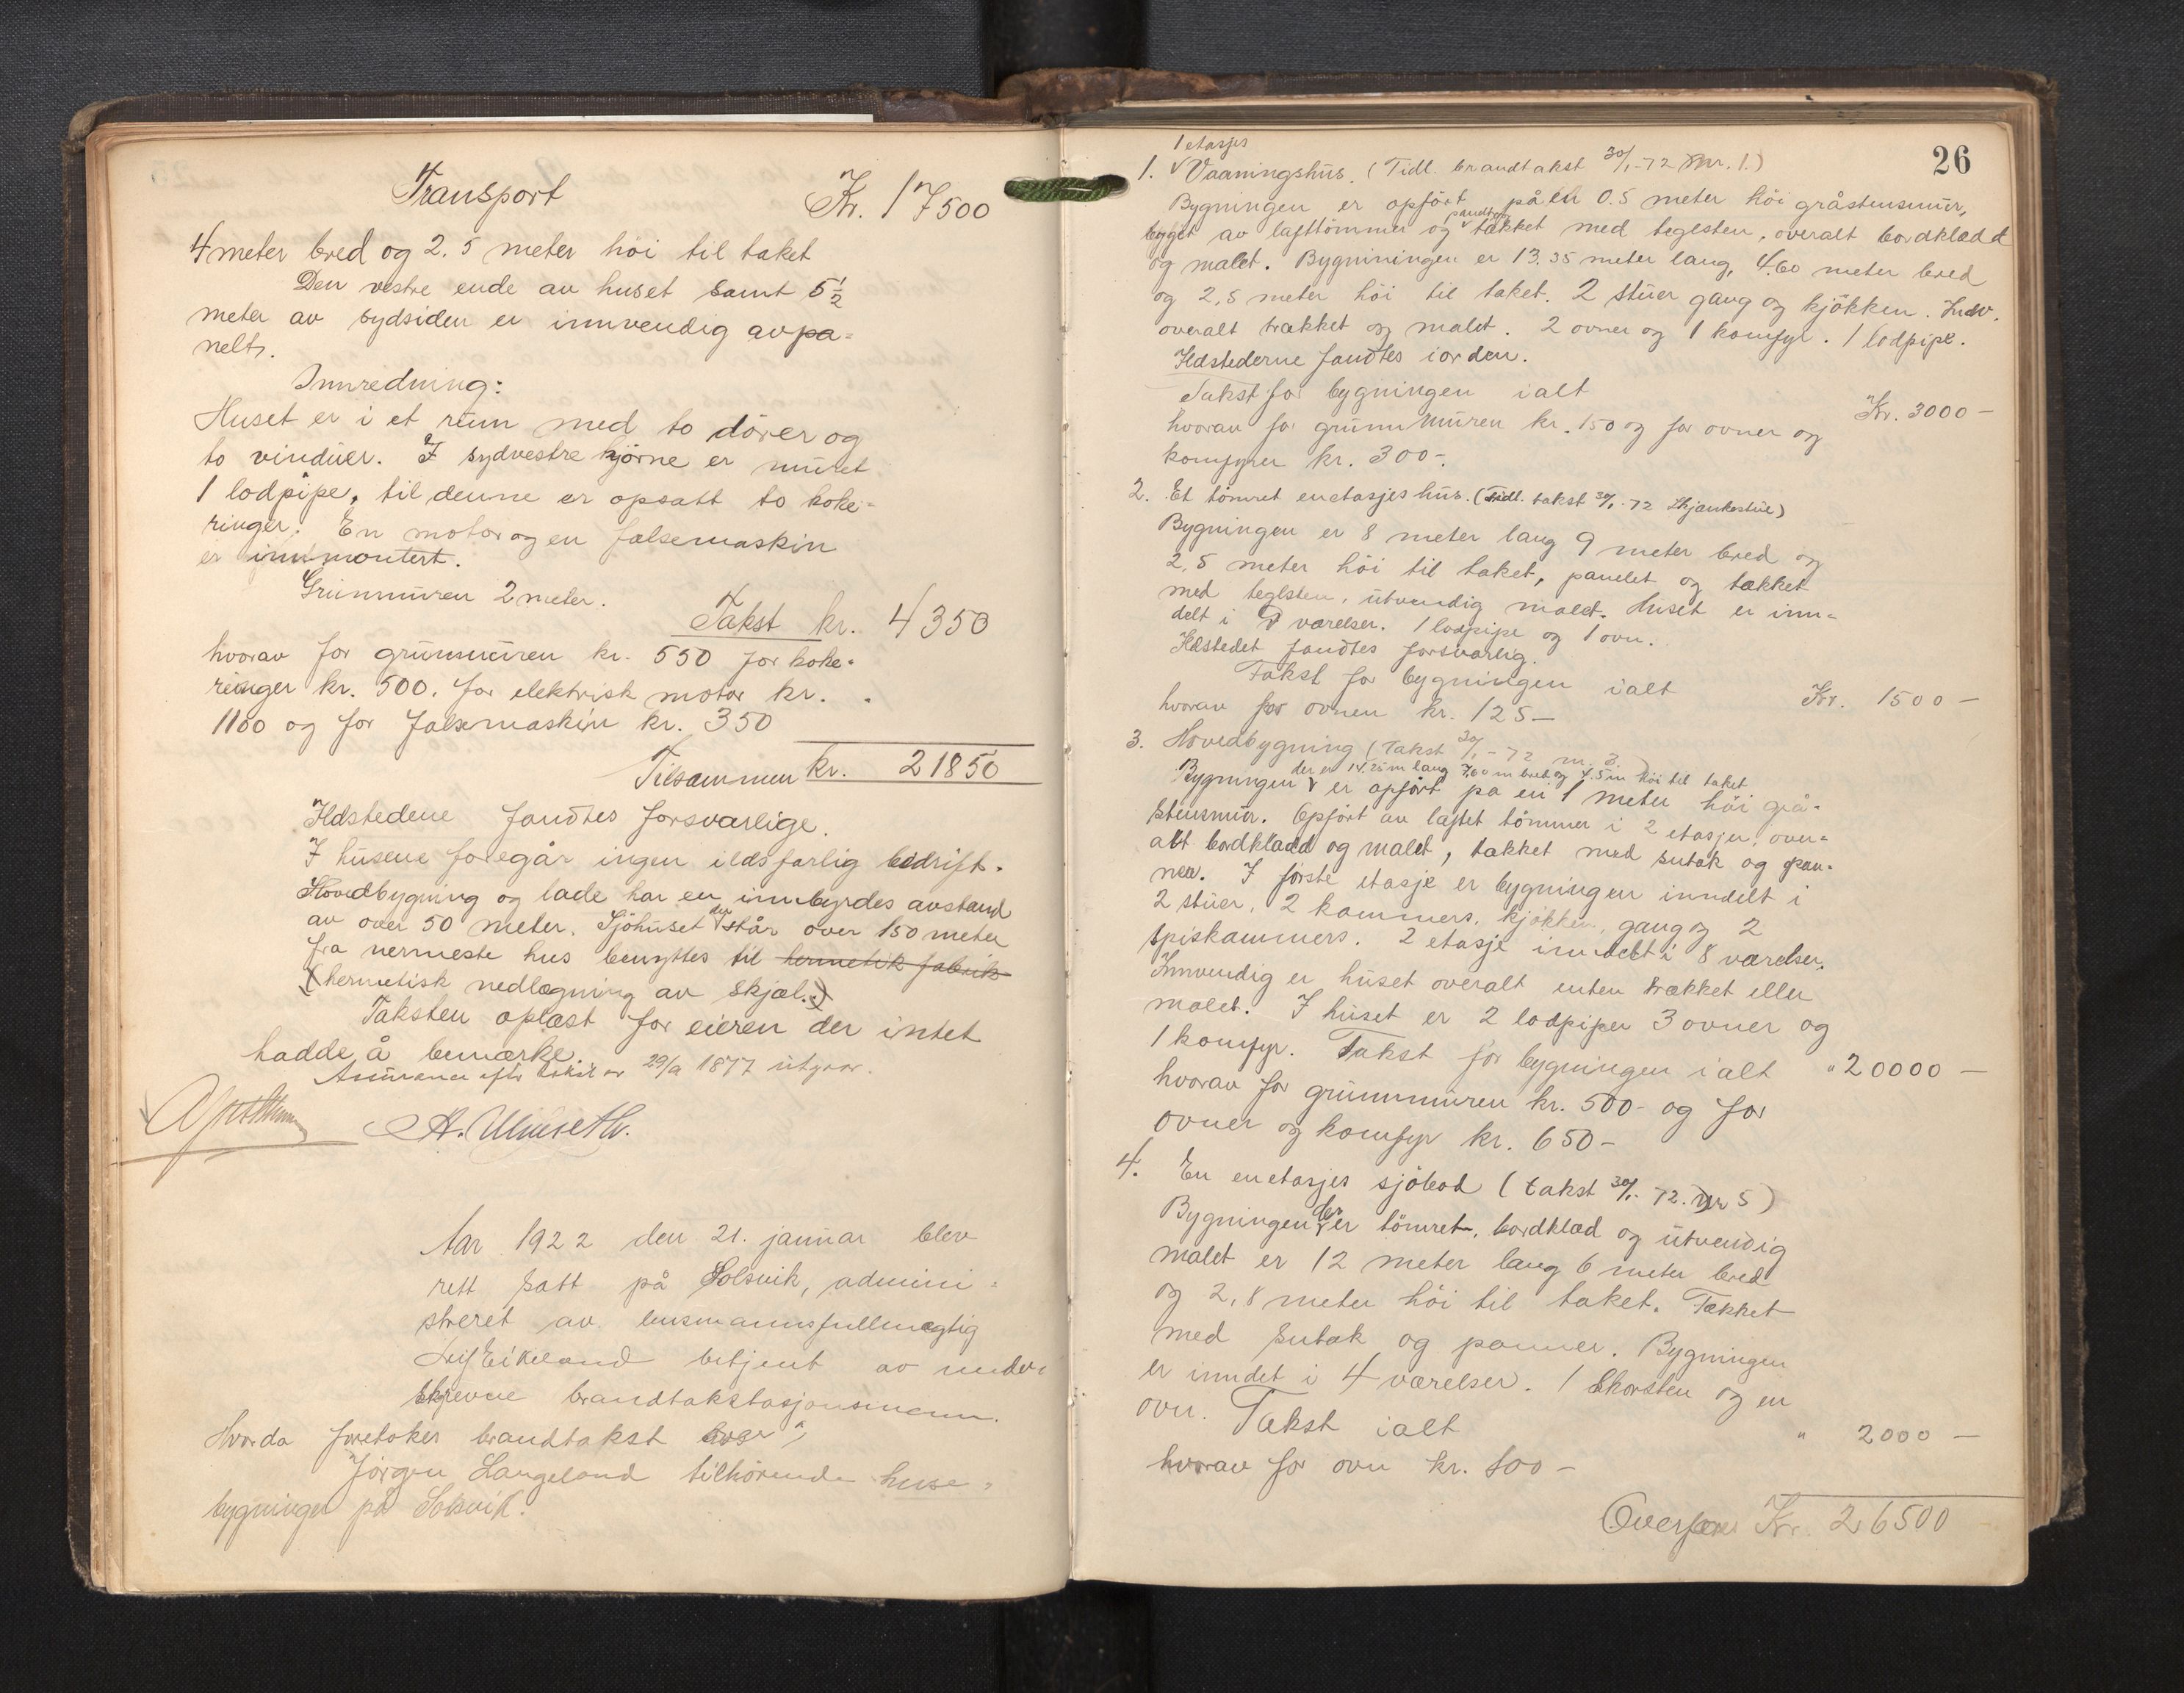 Transport Kr. 17500
4 meter bred og 2.5 meter höi til taket
Den vestre ende av huset samt 5 1/2
meter av sydsiden er innvendig avpa=
nelt.
Innredning:
Huset er i et rum med to dörer og
to vinduer. I sydvestre hjörne er muret
1 lodpipe, til denne er opsatt to koke=
ringer. En motor og en falsemaskin
er innmontert.
Grunmuren 2 meter.
Takst kr. 4350
hvorav for grunmuren kr. 550 for koke=
ringer kr. 500. for elektrisk motor kr.
1100 og for falsemaskin kr. 350
Tilsammen kr. 21850
Ildstedene fandtes forsvarlige.
I husene foregår ingen ildsfarlig bedrift.
Hovedbygning og lade har en innbyrdes avstand
av over 50 meter. Sjöhuset der står over 150 meter
fra nermeste hus benyttes til hermetik fabrik
(hermetisk nedlægning av skjæl.)
Taksten oplæst for eieren der intet
hadde å bemærke.
Assurance efter takst av 29/9 1877 utgaar.
Aar 1922 den 21. januar blev
rett satt på Solsvik, admini=
streret av lensmannsfullmægtig
Leif Eikeland betjent av under=
skrevne brandtakstasjonsmenn.
Hvorda foretokes brandtakst over
Jörgen Langeland tilhörende huse=
bygninger på Solsvik.
26
1 etasjes
1. Vaaningshus. (Tidl. brandtakst 30/1-72 Nr. 1.)
Bygningen er opfört på en 0.5 meter höi gråstensmur,
bygget av lafttömmer og tækket med teglsten, overalt bordklædd
og malet. Bygniningen er 13.35 meter lang, 4.60 meter bred
og 2,5 meter höi til taket. 2 stuer gang og kjökken. Indv.
overalt trækket og malet. 2 ovner og 1 komfyr. 1 lodpipe.
Ildstederne fandtes iorden.
Takst for bygningen ialt Kr. 3000 -
hvorav for grunnmuren kr. 150 og for ovner og
komfyrer kr. 300-.
2. Et tömret enetasjes hus. (Tidl. takst 30/1-72 Skjænkestue)
Bygningen er 8 meter lang 9 meter bred og
2,5 meter höi til taket, panelet og tækket
med teglsten, utvendig malet. Huset er inn=
delt i 7 værelser. 1 lodpipe og 1 ovn.
Ildstedet fandtes forsvarlig.
Takst for bygningen ialt Kr. 1500 -
hvorav for ovnen kr. 125 -
3. Hovedbygning (Takst 30/1-72 nr. 3.)
der er 14.25 m lang 7.60 m bred og 4.5 m höi til taket
Bygningen er opfört på en 1 meter höi grå=
stensmur. Opfört av laftet tömmer i 2 etasjer, over=
alt bordklædd og malet, tækket med sutak og pan=
ner. I förste etasje er bygningen inndelt i
2 stuer, 2 kammers, kjökken, gang og 2
spiskammers. 2 etasje inndelt i 8 værelser.
Innvendig er huset overalt enten trækket eller
malet. I huset er 2 lodpiper 3 ovner og
1 komfyr. Takst for bygningen ialt " 20000 -
hvorav for grunnmuren kr. 500- og for
ovner og komfyr kr. 650 -
4. En enetasjes sjöbod (takst 30/1-72. Nr 5)
Bygningen der er tömret, bordklæd og utvendig
malet er 12 meter lang 6 meter bred
og 2,8 meter höi til taket. Tækket
med sutak og panner. Bygningen
er inndet i 4 værelser. 1 skorsten og en
ovn. Takst ialt " 2000 -
hvorav for ovn kr. 100 -
Overföres Kr. 26500